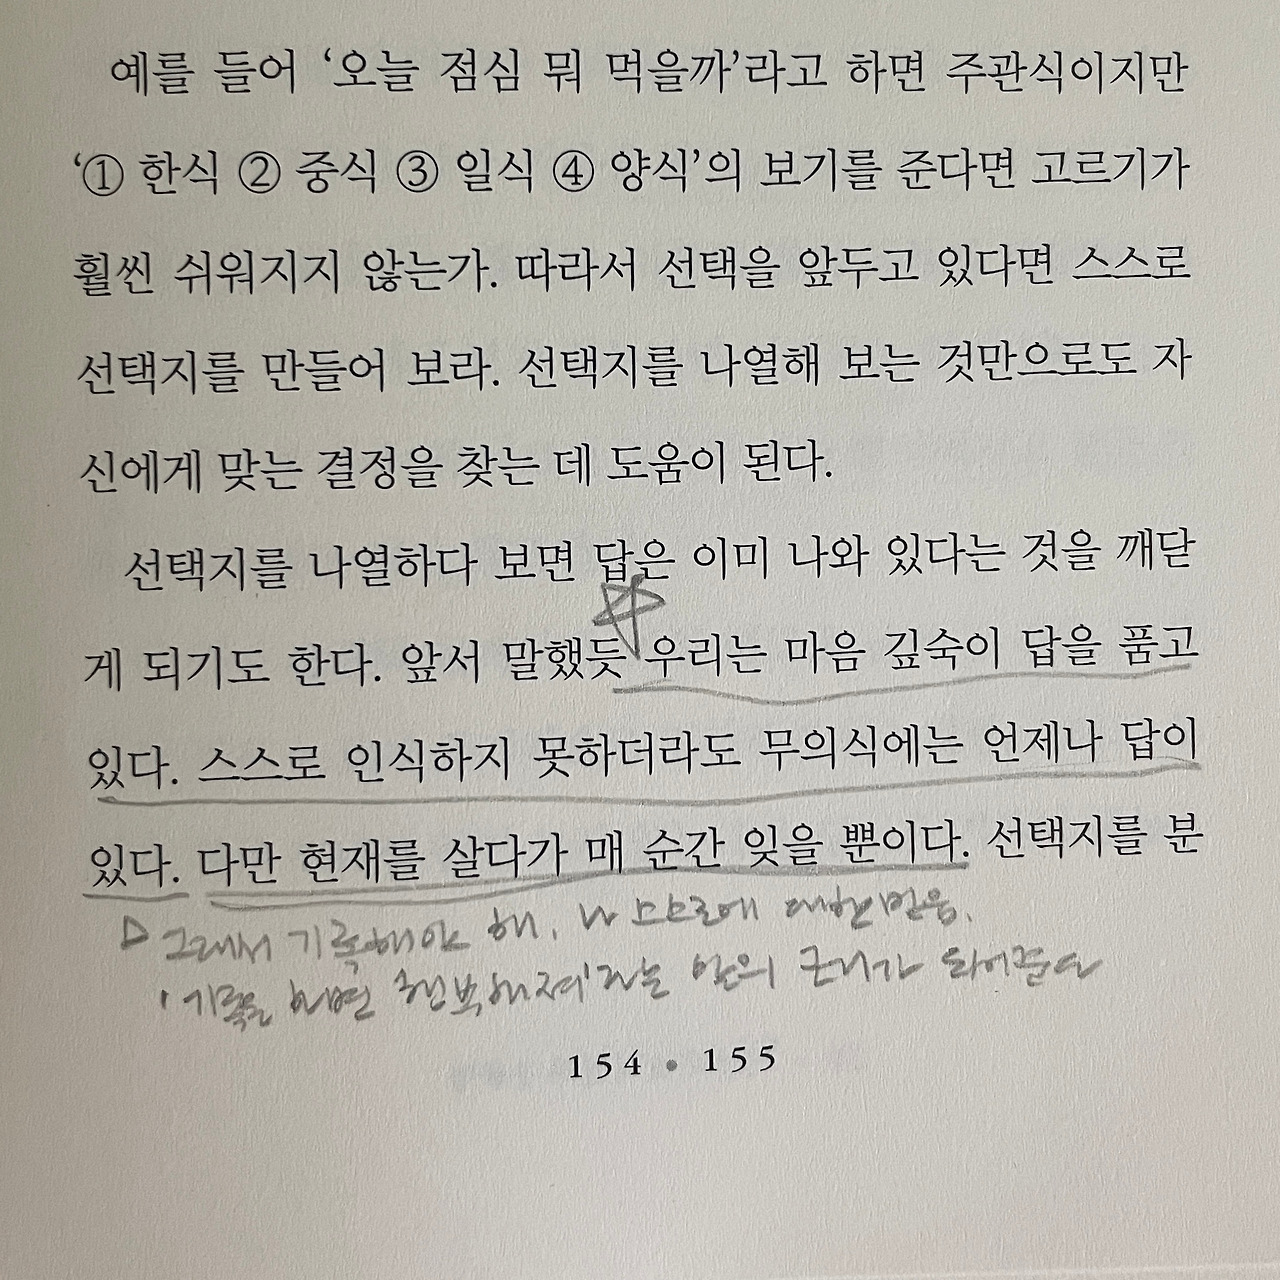 예를 들어 ‘오늘 점심 뭐 먹을까’라고 하면 주관식이지만
‘① 한식 ② 중식 ③ 일식 ④ 양식’의 보기를 준다면 고르기가
훨씬 쉬워지지 않는가. 따라서 선택을 앞두고 있다면 스스로
선택지를 만들어 보라. 선택지를 나열해 보는 것만으로도 자
신에게 맞는 결정을 찾는 데 도움이 된다.
선택지를 나열하다 보면 답은 이미 나와 있다는 것을 깨닫
게 되기도 한다. 앞서 말했듯 우리는 마음 깊숙이 답을 품고
있다. 스스로 인식하지 못하더라도 무의식에는 언제나 답이
있다. 다만 현재를 살다가 매 순간 잊을 뿐이다. 선택지를 분
그래서 기록해야 해. 나 스스로에 대한 믿음.
하면 행복해져' 라는 근거가 되어준다
154 • 155